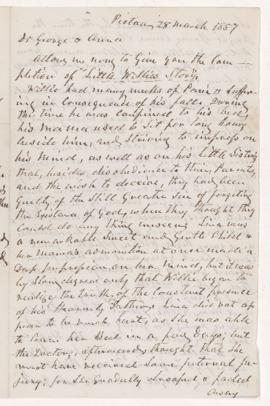 Pictou, 28 March 1857
Dr George & Anna
Allow me now to give you the com-
pletion of Little Willies Story.
Willie had many weeks of Pain & Suffer-
ing in Consequence of his fall. During
the time he was confined to his bed,
his Mamma used to Sit for long hours
beside him, and Striving to impress on
his Mind, as well as on his little Sisters
that, besides disobedience to their Parents,
and the wish to deceive, they had been
guilty of the Still Greater Sin of forgetting
the Eye of God, when they thought they
could do any thing unseen. Lina was
a remarkable Sweet and Gentle Child &
her Mamas admonition at once made a
deep impression on her mind, but it was
by Slow degrees only that Willie began to
realize the truth, of the Constant presence
of his Heavenly Father. Lina did not ap
pear to be much hurt, as She was able
to leave her Bed in a few days; but
the Doctors, afterwards thought that She
must have received Some internal in-
jury; for She Gradually drooped & faded
away